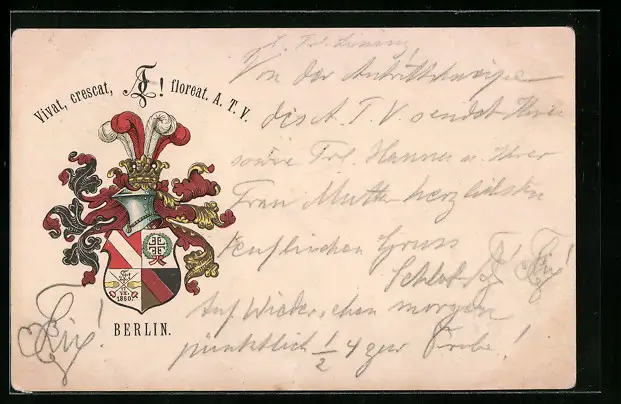 Vivat, crescat, floreat. A. T. V.
Von der Antrittskneipe
des A. T. V. sendet Ihnen
sowie Frl. Hanna u. Ihrer
Frau Mutter herzlichsten
Gruss
1860.
BERLIN.
Auf Wiedersehen morgen
pünktlich ½ 4 zur Probe!